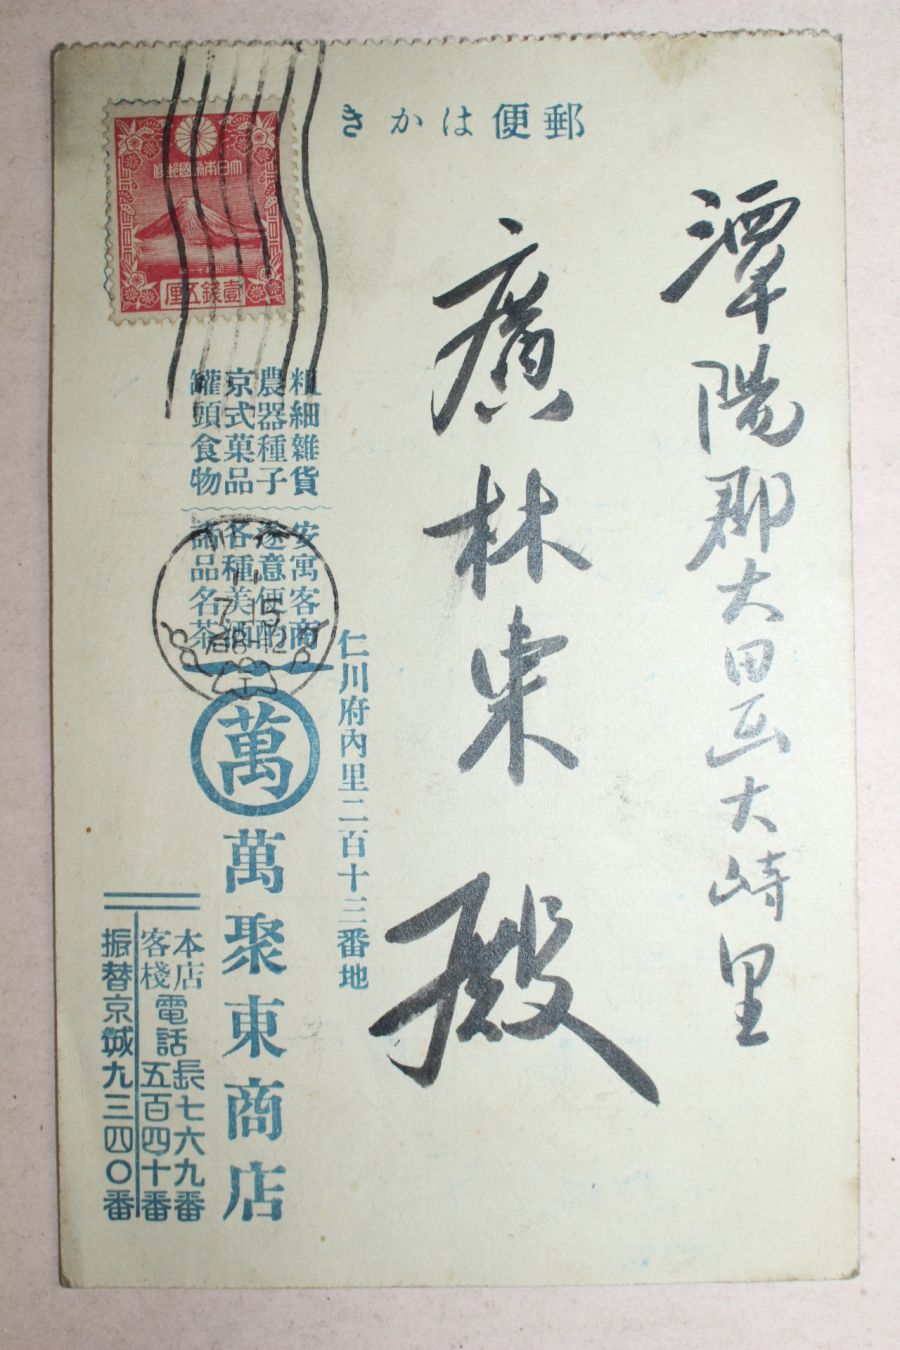 郵便はかき
潭陽郡大田面大峙里
廣林東殿
大日本帝國郵便
壹錢五厘
粗細雜貨
農器種子
京式菓品
罐頭食物
安寓客商
遂意便酌
各種美酒
諸品名茶
仁川府內里二百十三番地
萬
萬聚東商店
本店電話長七六九番
客棧電話五百四十番
振替京城九三四〇番
仁川
11
7 15
8-12